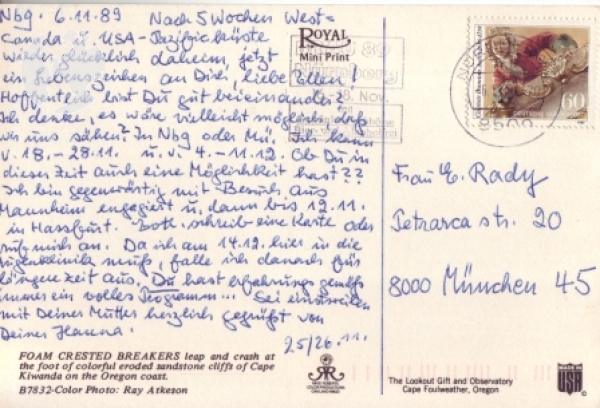 Nbg. 6.11.89 Nach 5 Wochen West=
Canada u. USA-Pazificküste
wieder glücklich daheim, jetzt
ein Lebenszeichen an Dich, liebe
Hoffentlich bist Du gut beieinander?
Ich denke, es wäre vielleicht möglich, daß
wir uns sähen? In Nbg oder Mü. Ich kann
v. 18.-28.11 u. v. 4.-11.12. Ob Du in
dieser Zeit auch eine Möglichkeit hast??
Ich bin gegenwärtig mit Besuch aus
Mannheim engagiert u. dann bis 12.11.
in Hassfurt. Bitte schreib eine Karte oder
ruf mich an. Da ich am 14.12. hier in die
Augenklinik muß, falle ich danach für
längere Zeit aus. Du hast erfahrungsgemäß
immer ein volles Programm... Sei einstweilen
mit Deiner Mutter herzlich gegrüßt von
Deiner Hanna.
25/26.11.
FOAM CRESTED BREAKERS leap and crash at
the foot of colorful eroded sandstone cliffs of Cape
Kiwanda on the Oregon coast.
B7832-Color Photo: Ray Atkeson
ROYAL
Mini Print
Nov.
60
8500
Frau E. Rady
Petrarca str. 20
8000 München 45
The Lookout Gift and Observatory
Cape Foulweather, Oregon
MADE IN
USA